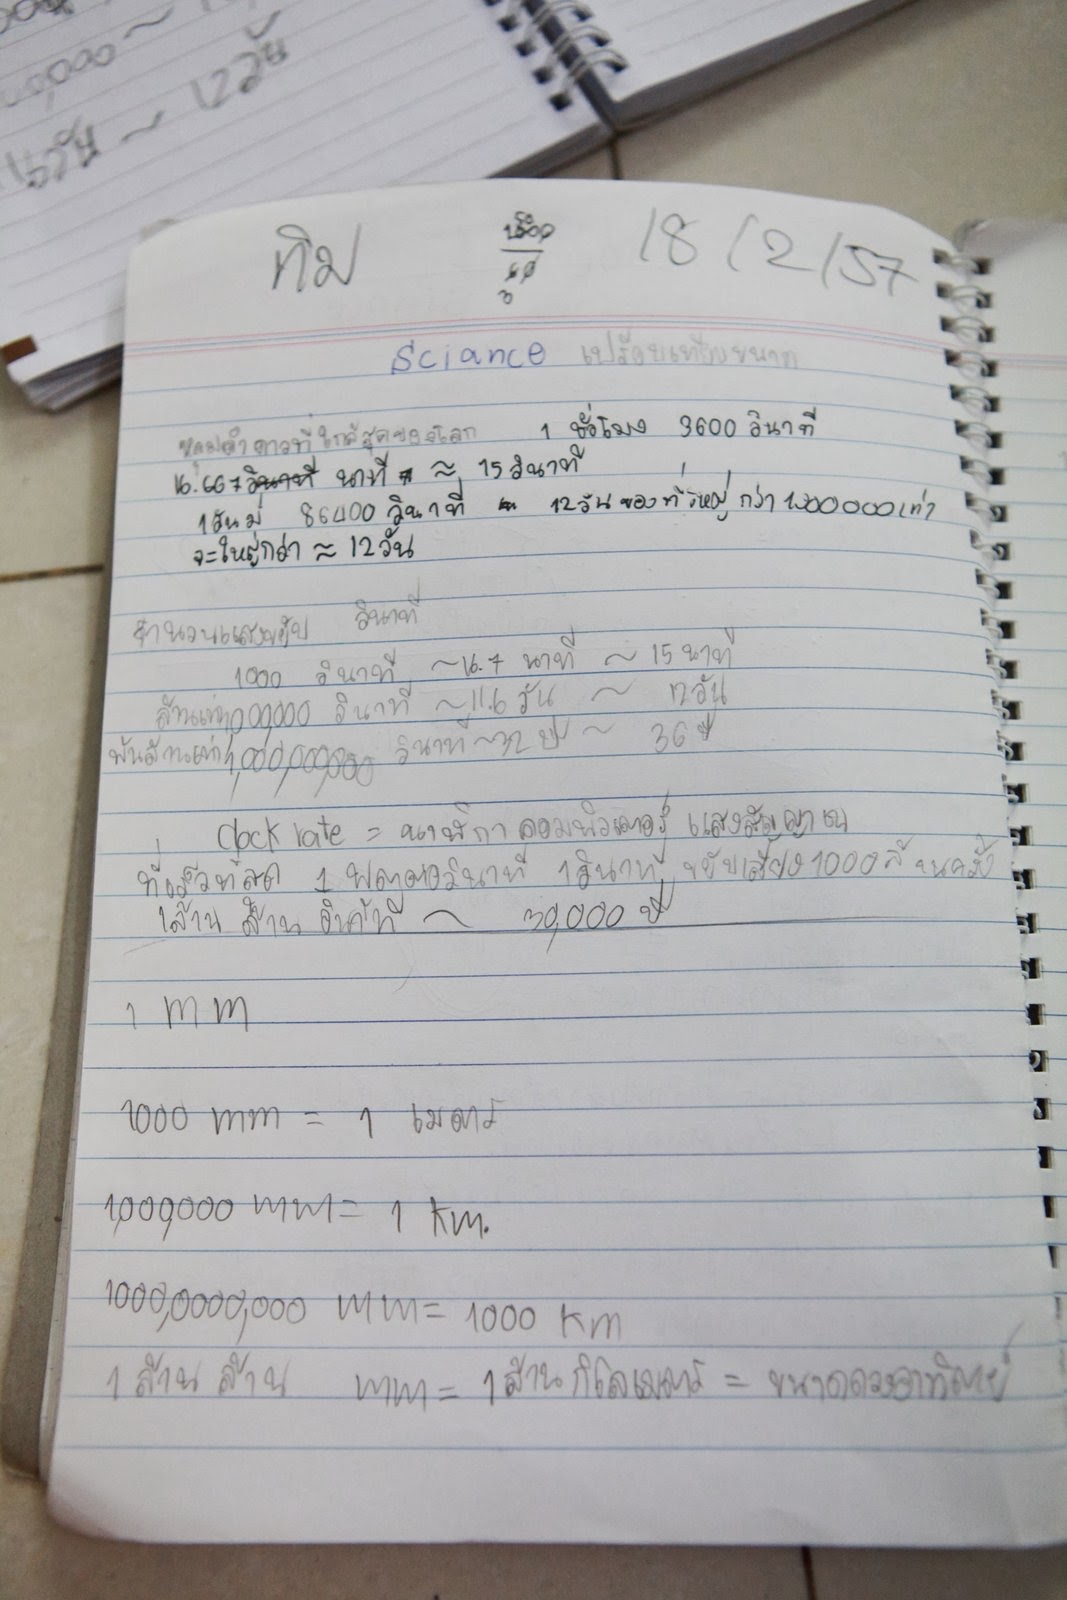 12วัน
วัน ~ 12วัน
ทิม 18/2/57
Sciance เปรียบเทียบขนาด
หลุมดำดาวที่ใกล้สุดของโลก 1 ชั่วโมง 3600 วินาที
16.667 วินาที นาที ≈ 15 วินาที
1วันมี 86400 วินาที 12วันของที่ใหญ่กว่า 1000000เท่า
จะใหญ่กว่า ≈ 12วัน
จำนวนแสงขยับ วินาที
1000 วินาที ~16.7 นาที ~ 15 นาที
ล้านเท่า 1,000,000 วินาที ~11.6 วัน ~ 12วัน
พันล้านเท่า 1,000,000,000 วินาที ~32 ปี ~ 36 ปี
Clock rate = นาฬิกา คอมพิวเตอร์ แสงสัญญาณ
ที่เร็วที่สุด 1 วินาที ขยับ 1000ล้านครั้ง
1ล้าน ล้าน วินาที ~ 30,000 ปี
1 mm
1000 mm = 1 เมตร
1,000,000 mm = 1 km.
1000,0000,000 mm = 1000 km
1 ล้าน ล้าน mm = 1ล้าน กิโลเมตร = ขนาดดวงอาทิตย์